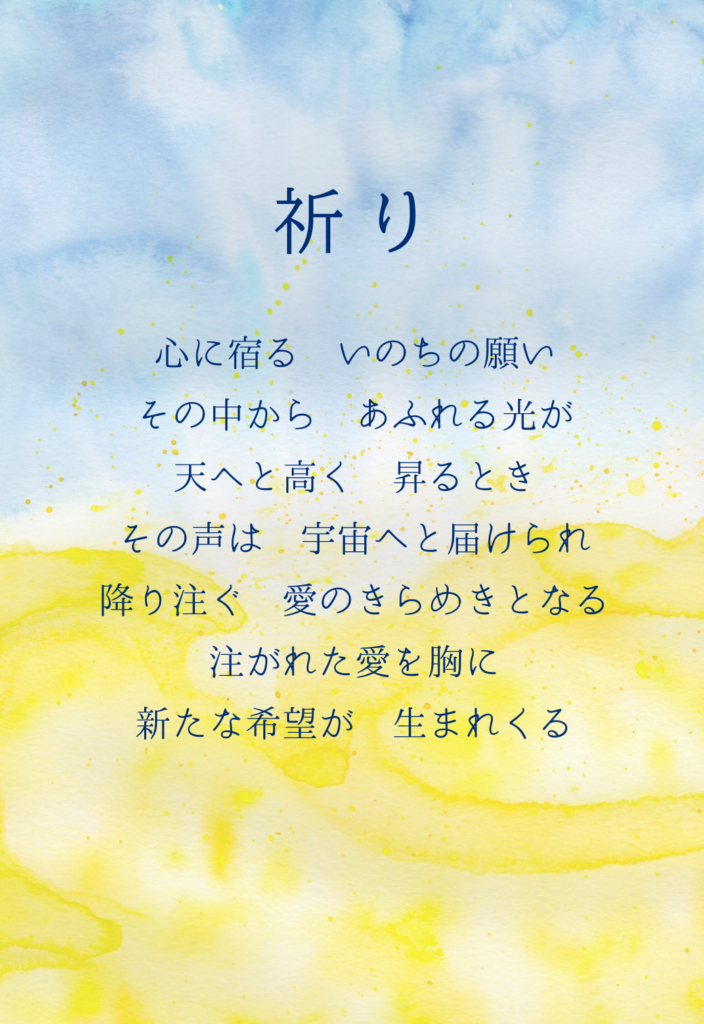 祈り
心に宿る　いのちの願い
その中から　あふれる光が
天へと高く　昇るとき
その声は　宇宙へと届けられ
降り注ぐ　愛のきらめきとなる
注がれた愛を胸に
新たな希望が　生まれくる